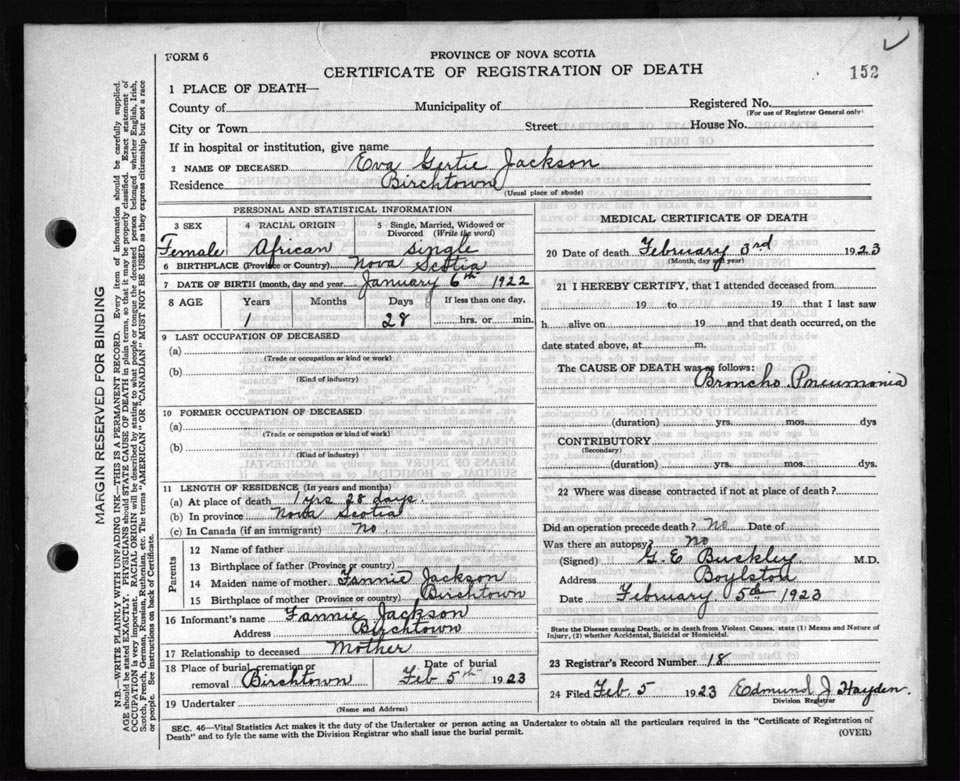 FORM 6
PROVINCE OF NOVA SCOTIA
CERTIFICATE OF REGISTRATION OF DEATH
152
1 PLACE OF DEATH—
County of
Municipality of
Registered No.
(For use of Registrar General only)
City or Town
Street
House No.
If in hospital or institution, give name
2 NAME OF DECEASED Eva Gertie Jackson
Residence Birchtown
(Usual place of abode)
PERSONAL AND STATISTICAL INFORMATION
3 SEX
Female
4 RACIAL ORIGIN
African
5 Single, Married, Widowed or Divorced (Write the word)
single
6 BIRTHPLACE (Province or Country) Nova Scotia
7 DATE OF BIRTH (month, day and year) January 6th 1922
8 AGE Years Months Days If less than one day,
1 28 hrs. or min.
9 LAST OCCUPATION OF DECEASED
(a)
(Trade or occupation or kind of work)
(b)
(Kind of industry)
10 FORMER OCCUPATION OF DECEASED
(a)
(Trade or occupation or kind of work)
(b)
(Kind of industry)
11 LENGTH OF RESIDENCE (In years and months)
(a) At place of death 1 yrs 28 days
(b) In province Nova Scotia
(c) In Canada (if an immigrant) No
Parents
12 Name of father
13 Birthplace of father (Province or country)
14 Maiden name of mother Fannie Jackson
15 Birthplace of mother (Province or country) Birchtown
16 Informant's name Fannie Jackson
Address Birchtown
17 Relationship to deceased Mother
18 Place of burial, cremation or removal Birchtown
Date of burial
Feb 5th 1923
19 Undertaker
(Name and Address)
MEDICAL CERTIFICATE OF DEATH
20 Date of death February 3rd 1923
(Month, day and year)
21 I HEREBY CERTIFY, that I attended deceased from
19 to 19 that I last saw
h alive on 19 and that death occurred, on
date stated above, at m.
The CAUSE OF DEATH was as follows:
Broncho Pneumonia
(duration) yrs. mos. dys
CONTRIBUTORY
(Secondary)
(duration) yrs. mos. dys
22 Where was disease contracted if not at place of death?
Did an operation precede death? no Date of
Was there an autopsy? No
(Signed) G. E Buckley M.D.
Address Boylston
Date February 5th 1923
State the Disease causing Death, or in death from Violent Causes, state (1) Means and Nature of
Injury, (2) whether Accidental, Suicidal or Homicidal.
23 Registrar's Record Number 18
24 Filed Feb 5 1923 Edmund J Hayden.
Division Registrar
SEC. 46—Vital Statistics Act makes it the duty of the Undertaker or person acting as Undertaker to obtain all the particulars required in the "Certificate of Registration of
Death" and to fyle the same with the Division Registrar who shall issue the burial permit.
(OVER)
MARGIN RESERVED FOR BINDING
N.B.—WRITE PLAINLY WITH UNFADING INK—THIS IS A PERMANENT RECORD. Every item of information should be carefully supplied.
AGE should be stated EXACTLY. PHYSICIANS should STATE CAUSE OF DEATH in plain terms, so that it may be properly classified. Exact statement of
OCCUPATION is very important. RACIAL ORIGIN will be described by stating to what people or tongue the deceased person belonged whether English, Irish,
Scotch, French, German, Russian, Ruthenian, etc. The terms "AMERICAN" OR "CANADIAN" MUST NOT BE USED as they express citizenship but not a race
or people. See instructions on back of Certificate.